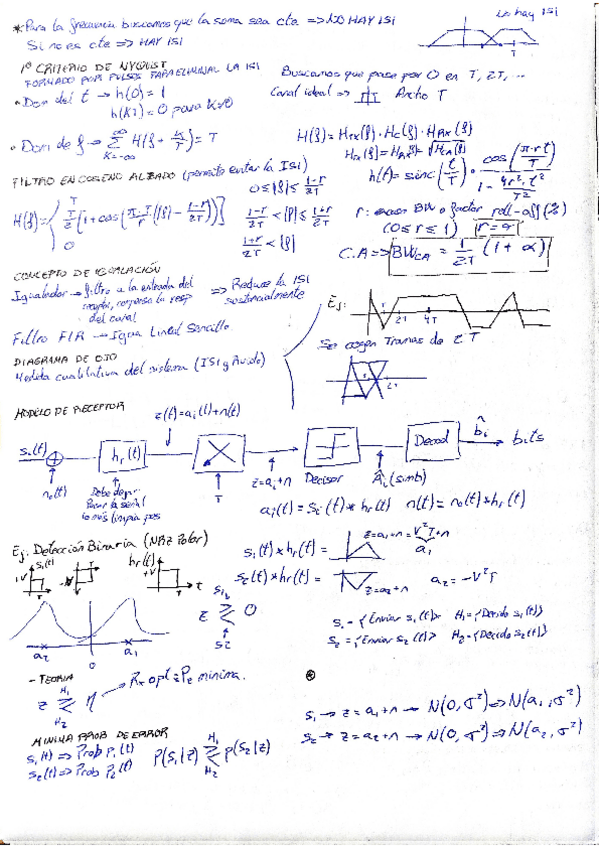 *Para la frecuencia buscamos que la soma sea cte => NO HAY ISI
Si no es cte => HAY ISI
No hay ISI
T
1º CRITERIO DE NYQUIST
FORMADO POR PULSOS PARA ELIMINAR LA ISI
• Dom del t → h(0) = 1
h(kT) = 0 para k≠0
Buscamos que pase por 0 en T, 2T, ...
Canal ideal => Ancho T
• Dom de f → Σ H(f + k/T) = T
k=-∞ ∞
H(f) = H_TX(f) · H_C(f) · H_RX(f)
H_TX(f) = H_RX(f) = √H_CA(f)
h(t) = sinc(t/T) · cos(π·r·t/T) / (1 - 4r²·t²/T²)
FILTRO EN COSENO ALZADO (permite evitar la ISI)
H(f) = { T 0 ≤ |f| ≤ (1-r)/2T
T/2 [1 + cos(π·T/r (|f| - (1-r)/2T))] (1-r)/2T < |f| ≤ (1+r)/2T
0 (1+r)/2T < |f|
r: exceso BW o factor roll-off (%)
(0 ≤ r ≤ 1) r = α
C.A => BW_CA = 1/2T (1 + α)
CONCEPTO DE IGUALACIÓN
Igualador → filtro a la entrada del
receptor, compensa la resp
del canal
=> Reduce la ISI
sustancialmente
Filtro FIR → Igua Lineal Sencillo
Ej:
2T 4T
Se cogen Tramas de 2T
DIAGRAMA DE OJO
Medida cualitativa del sistema (ISI y Ruido)
MODELO DE RECEPTOR
z(t) = a_i(t) + n(t)
s_i(t) h_r(t) T Decisor Decod b̂_i bits
n_o(t)
Debe dejar
Pasar la señal
lo más limpia pos
z = a_i + n
Â_i (simb)
a_i(t) = s_i(t) * h_r(t) n(t) = n_o(t) * h_r(t)
Ej: Detección Binaria (NRZ Polar)
s_1(t) h_r(t)
+V -V +V t
s_1(t) * h_r(t) = z = a_1 + n = V²T + n
a_1
s_2(t) * h_r(t) = z = a_2 + n a_2 = -V²T
z ≷ 0
s1
s2
a_2 0 a_1
s_1 = {Enviar s_1(t)} H_1 = {Decido s_1(t)}
s_2 = {Enviar s_2(t)} H_2 = {Decido s_2(t)}
- TEORIA
z ≷ η → Rx opt = Pe minima.
H_1
H_2
s_1 → z = a_1 + n → N(0, σ²) => N(a_1, σ²)
s_2 → z = a_2 + n → N(0, σ²) => N(a_2, σ²)
MINIMA PROB DE ERROR
s_1(t) => Prob p_1(t)
s_2(t) => Prob P_2(t)
p(s_1|z) ≷ p(s_2|z)
H_1
H_2